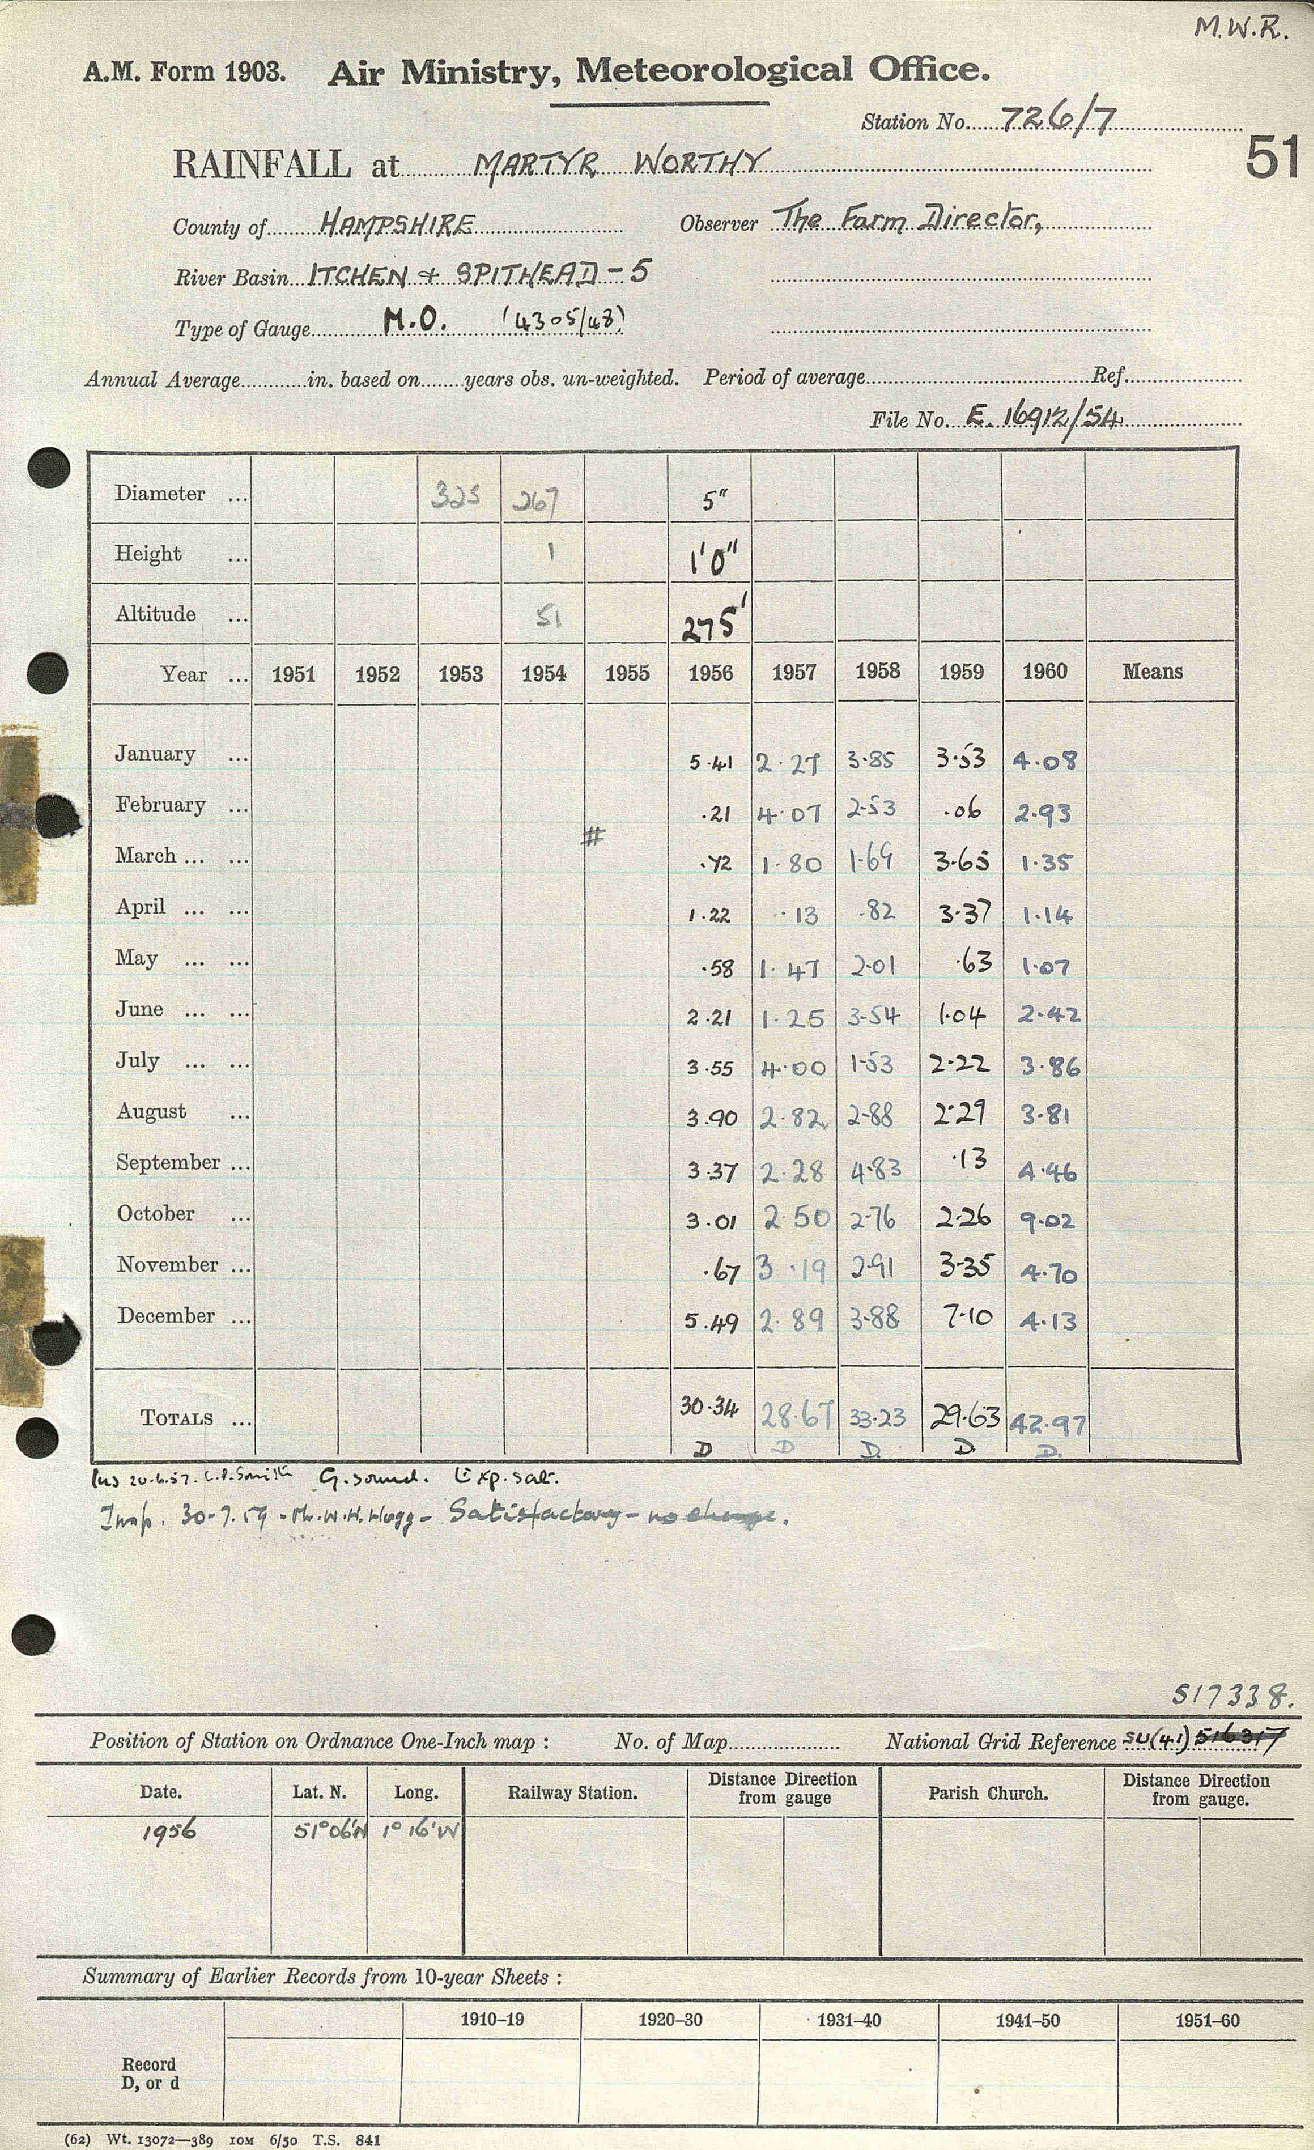 M.W.R.
A.M. Form 1903. Air Ministry, Meteorological Office.
Station No. 726/7
51
RAINFALL at MARTYR WORTHY
County of HAMPSHIRE Observer The Farm Director,
River Basin ITCHEN & SPITHEAD - 5
Type of Gauge M.O. (4305/48)
Annual Average in. based on years obs. un-weighted. Period of average Ref.
File No. E. 16912/54
Diameter ... 325 267 5"
Height ... 1 1'0"
Altitude ... 51 275'
Year ... 1951 1952 1953 1954 1955 1956 1957 1958 1959 1960 Means
January ... 5.41 2.27 3.85 3.53 4.08
February ... .21 4.07 2.53 .06 2.93
#
March ... ... .72 1.80 1.69 3.65 1.35
April ... ... 1.22 .13 .82 3.37 1.14
May ... ... .58 1.47 2.01 .63 1.07
June ... ... 2.21 1.25 3.54 1.04 2.42
July ... ... 3.55 4.00 1.53 2.22 3.86
August ... 3.90 2.82 2.88 2.29 3.81
September ... 3.37 2.28 4.83 .13 4.46
October ... 3.01 2.50 2.76 2.26 9.02
November ... .67 3.19 2.91 3.35 4.70
December ... 5.49 2.89 3.88 7.10 4.13
TOTALS ... 30.34 28.67 33.23 29.63 42.97
D D D D D
20.6.57. L.P. Smith G. sound. Exp. sat.
Insp. 30-7.59 - Mr. W.H. Hogg - Satisfactory - no change.
517338.
Position of Station on Ordnance One-Inch map : No. of Map National Grid Reference SU(41) 516317
Date. Lat. N. Long. Railway Station. Distance Direction from gauge Parish Church. Distance Direction from gauge.
1956 51°06'N 1°16'W
Summary of Earlier Records from 10-year Sheets :
1910-19 1920-30 1931-40 1941-50 1951-60
Record
D, or d
(62) Wt. 13072—389 10M 6/50 T.S. 841